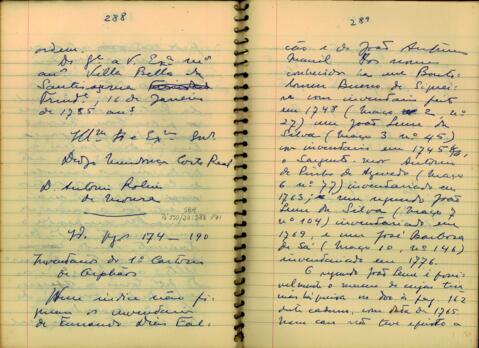 288
ordem.
Ds gᵉ a V. Exª mˢ
anˢ Villa Bella da
Santissima
Trindᵉ, 16 de Janeiro
de 1755 anˢ
Illᵐᵒ e Exᵐᵒ Snr
Diogo Mendonça Corte Real
D. Antonio Rolim
de Moura
Id. pgs 174 – 190
Inventarios do 1º Cartorio
de Orphãos
Num indice não fi-
guram os inventarios
de Fernando Dias Fal-
289
cão e de João Antunes
Maciel Dos nomes
conhecidos ha um Barto-
lomeu Bueno de Siquei-
ra com inventario feito
em 1748 (maço 2 nº
27) um João Leme da
Silva (maço 3 nº 45)
com inventario em 1745
o Sargento-mor Antonio
de Pinho de Azevedo (maço
6 nº 77) inventariado em
1763, um segundo João
Leme da Silva (maço 7
nº 104) inventariado em
1769, e um José Barbosa
de Sá (maço 10, nº 146)
inventariado em 1776.
O segundo João Leme é possi-
velmente o mesmo de cujas
à pag. 162
deste caderno, com data de 1765
nem eu não tive